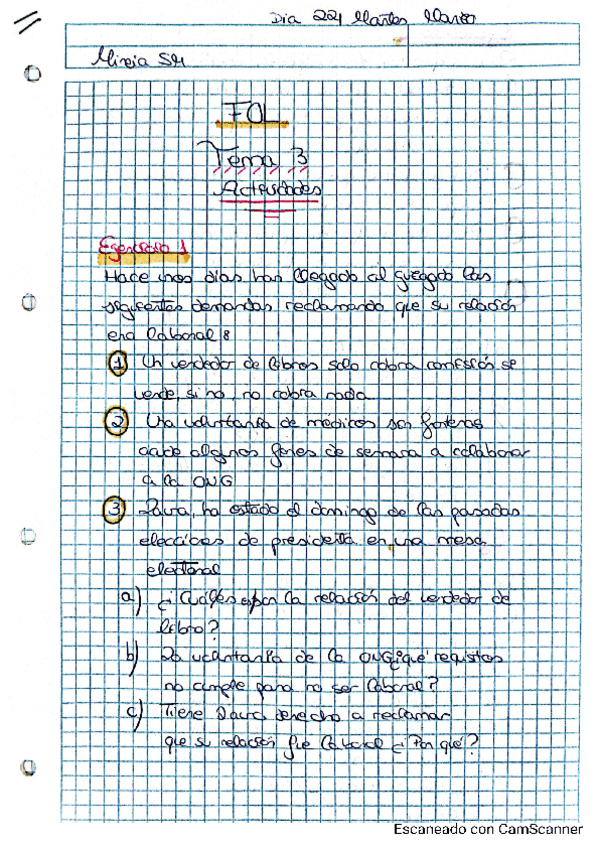 Dia 22, Martes, Marzo
Mireia SM
FOL
Tema 3
Actividades
Egercicio 1
Hace unos días han llegado al guzgado las
siguientes demandas reclamando que su relación
era laboral:
1 Un vendedor de libros solo cobra comisión se
vende, si no, no cobra nada
2 Una voluntaria de medicos sin fronteras
acude algunos fines de semana a colaborar
a la ONG
3 Laura, ha estado el domingo de las pasadas
elecciones de presidenta en una mesa
electoral
a) ¿Cuál es la relación del vendedor de
libro?
b) La voluntaria de la ONG ¿qué requisitos
no cumple para no ser laboral?
c) Tiene Laura derecho a reclamar
que su relación fue laboral ¿Por qué?
Escaneado con CamScanner